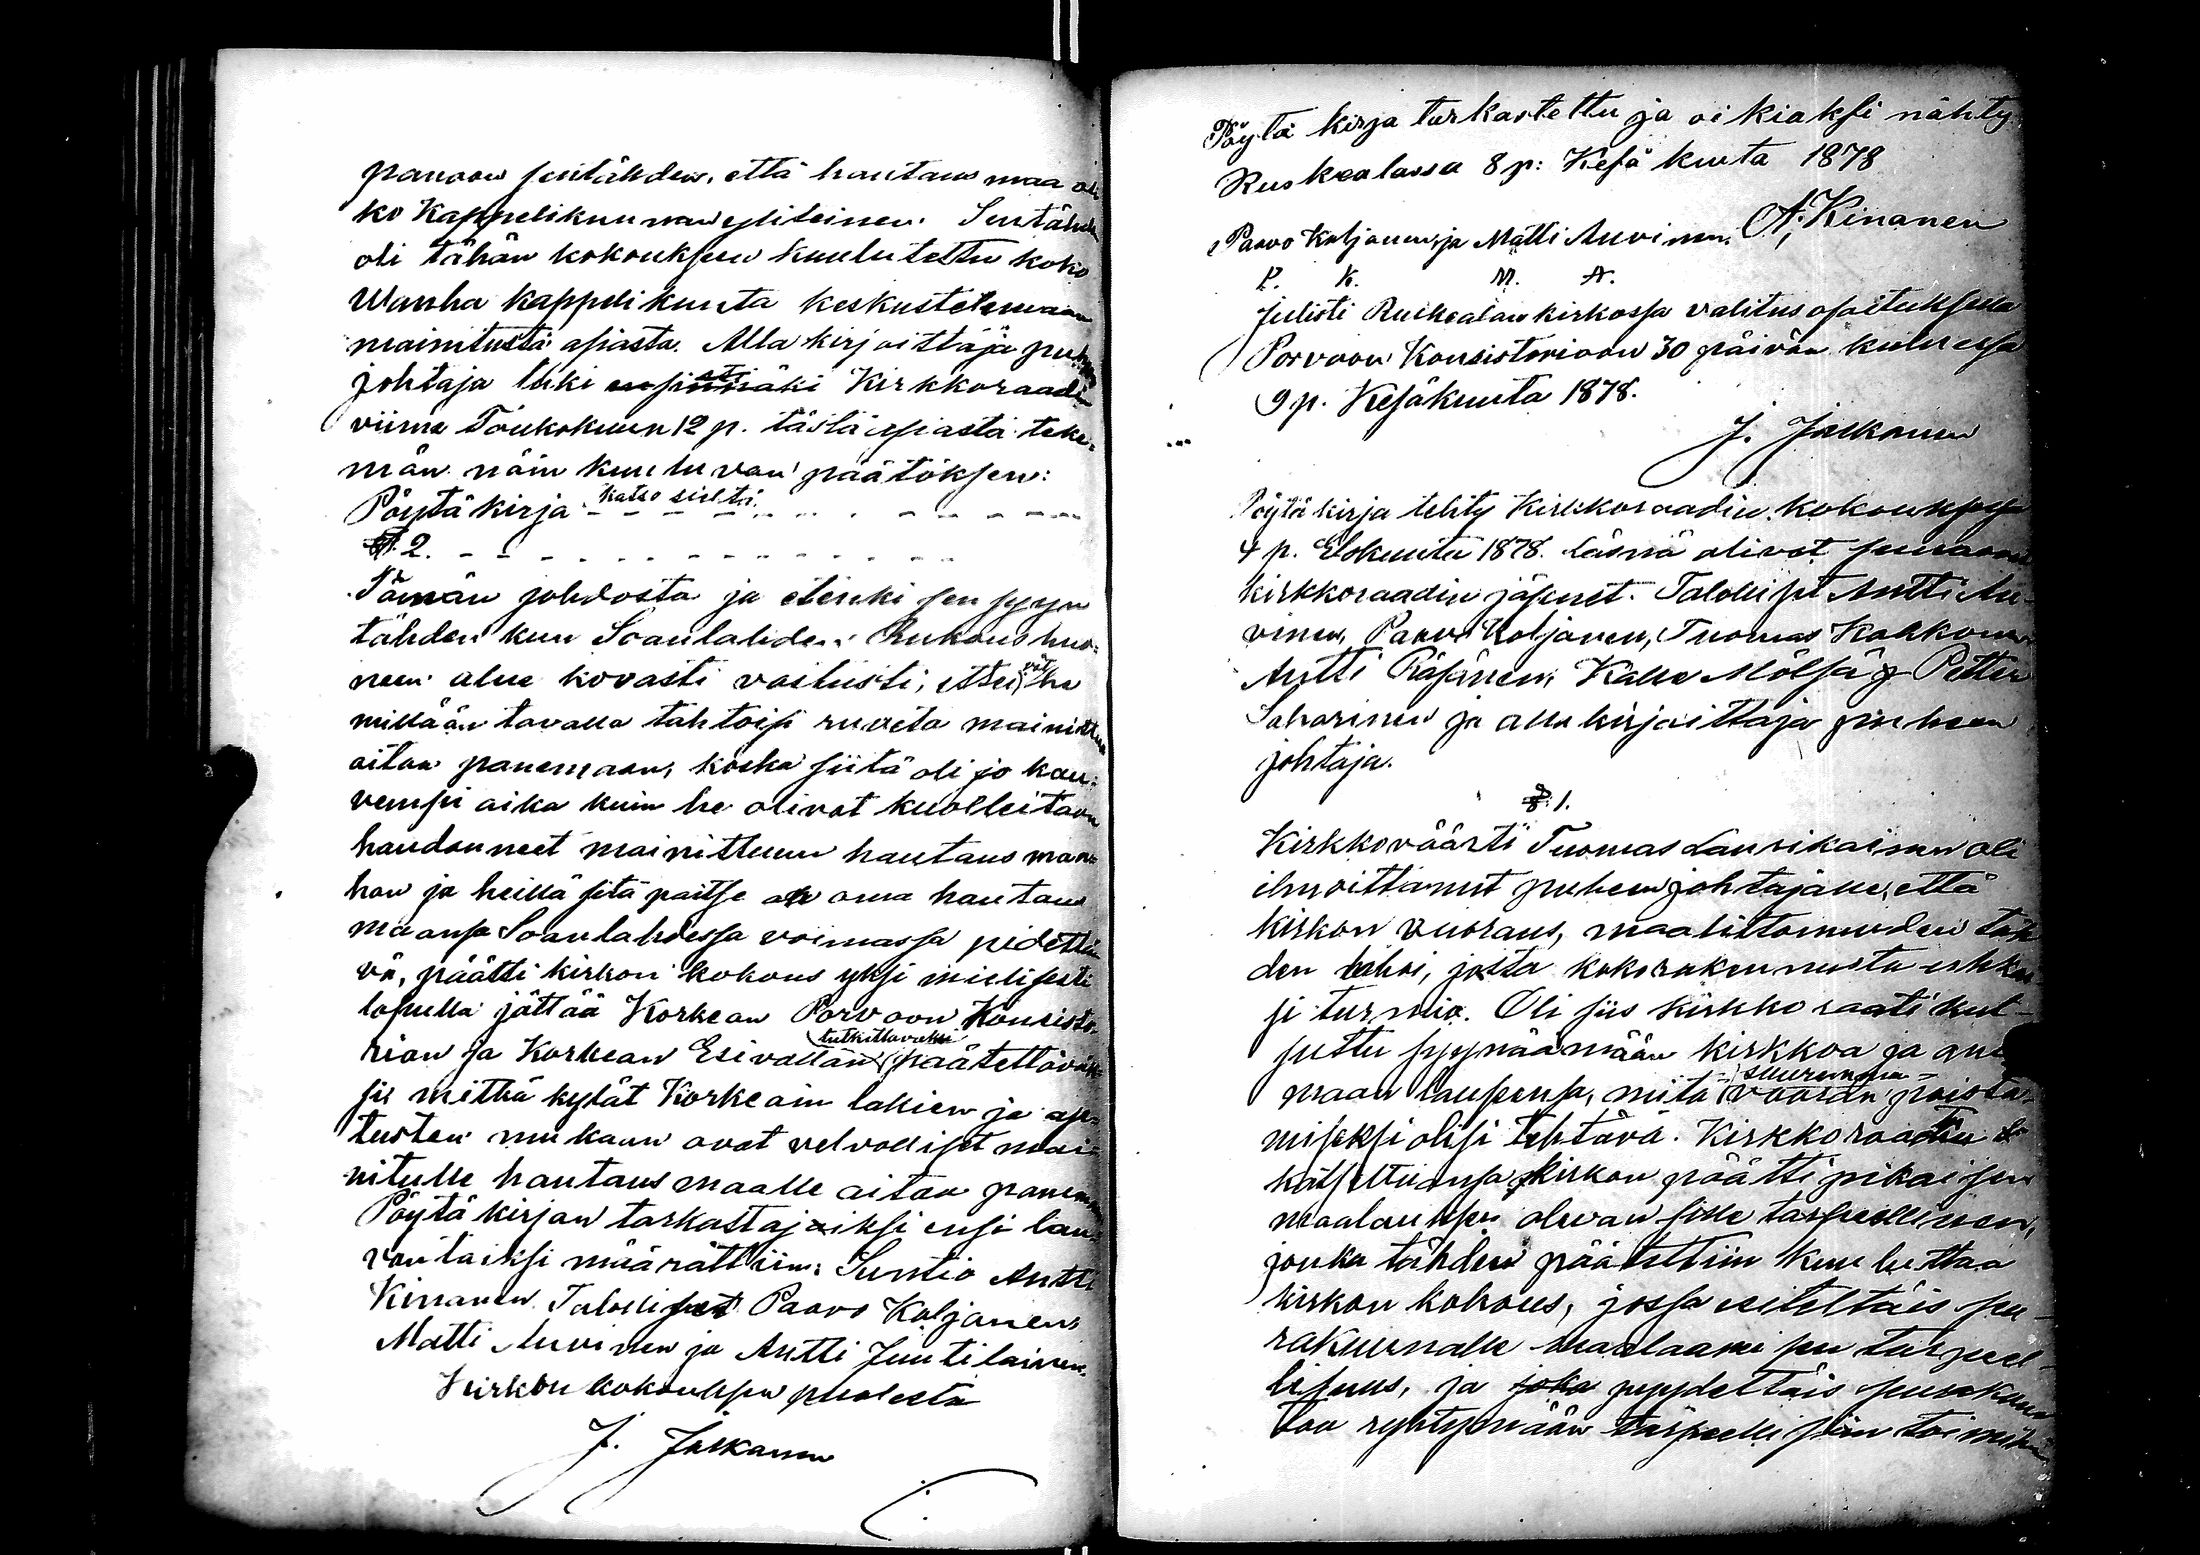 panoon sentähden, että hautaus maa on
ko Kappelikunnan yhteinen. Sentähden
oli tähän kokoukseen kuulutettu koko
Wanha kappelikunta keskustelemaan
mainitusta asiasta. Alla kirjoittaja puheen
johtaja luki Kirkkoraadin
viime Toukokuun 12 p. tästä asiasta teke-
män näin kuuluvan päätöksen:
Pöytäkirja katso sieltä
§. 2.
Tämän johdosta ja etenki sen syyn
tähden kun Soanlahden Rukoushuo-
neen alue kovasti vastusti, ettei vät he
millään tavalla tahtoisi ruveta mainittua
aitaa panemaan, koska siitä oli jo kau-
vempi aika kuin he olivat kuolleitaan
haudanneet mainittuun hautausmaa-
han ja heillä sitä paitse on oma hautaus
maansa Soanlahdessa voimassa pidettä-
vä, päätti kirkon kokous yksi mielisesti
lopulla jättää Korkean Porvoon Konsisto-
rion ja Korkean Esivallan tutkittavaksi päätettäväk-
si, mitkä kylät Korkeain lakien ja ase-
tusten mukaan ovat velvolliset mai-
nitulle hautausmaalle aitaa panemaan
Pöytäkirjan tarkastajaiksi ensi lau-
vantaiksi määrättiin: Suntio Antti
Kinanen Talolliset Paavo Koljanen,
Matti Auvinen ja Antti Juutilainen.
Kirkon kokouksen puolesta
J. Jalkanen
Pöytä kirja tarkastettu ja oikiaksi nähty
Ruskealassa 8 p: Kesä kuuta 1878
Paavo Koljanen, ja Matti Auvinen. A. Kinanen
P. K. M. A.
Julisti Ruskealan kirkossa valitus osoituksella
Porvoon Konsistorioon 30 päivän kuluessa
9 p. Kesäkuuta 1878.
J. Jalkanen
Pöytäkirja tehty Kirkkoraadin kokouksessa
4 p. Elokuuta 1878. Läsnä olivat seuraavat
kirkkoraadin jäsenet. Talolliset Antti Au-
vinen, Paavo Koljanen, Tuomas Kokkonen
Antti Räsänen, Kalle Mölsä ja Petter
Saharinen ja alla kirjoittaja puheen
johtaja.
§. 1.
Kirkkoväärti Tuomas Lauvikainen oli
ilmoittanut puheenjohtajalle, että
kirkon vuoraus, maalittomuuden täh
den lahoi, josta koko rakennusta uhkai-
si turmio. Oli siis kirkko raati kut-
suttu syynäämään kirkkoa ja
maan lausunsa, mitä suuremman vaaran poista-
miseksi olisi tehtävä. Kirkkoraati
katseltuansa kirkon päätti pikaisen
maalauksen olevan sille tarpeellinen,
jonka tähden päätettiin kuuluttaa
kirkon kokous, jossa esiteltäis seu-
rakunnalle maalaamisen tarpeel-
lisuus, ja pyydettäis seurakun
taa ryhtymään tarpeellisiin toimihin